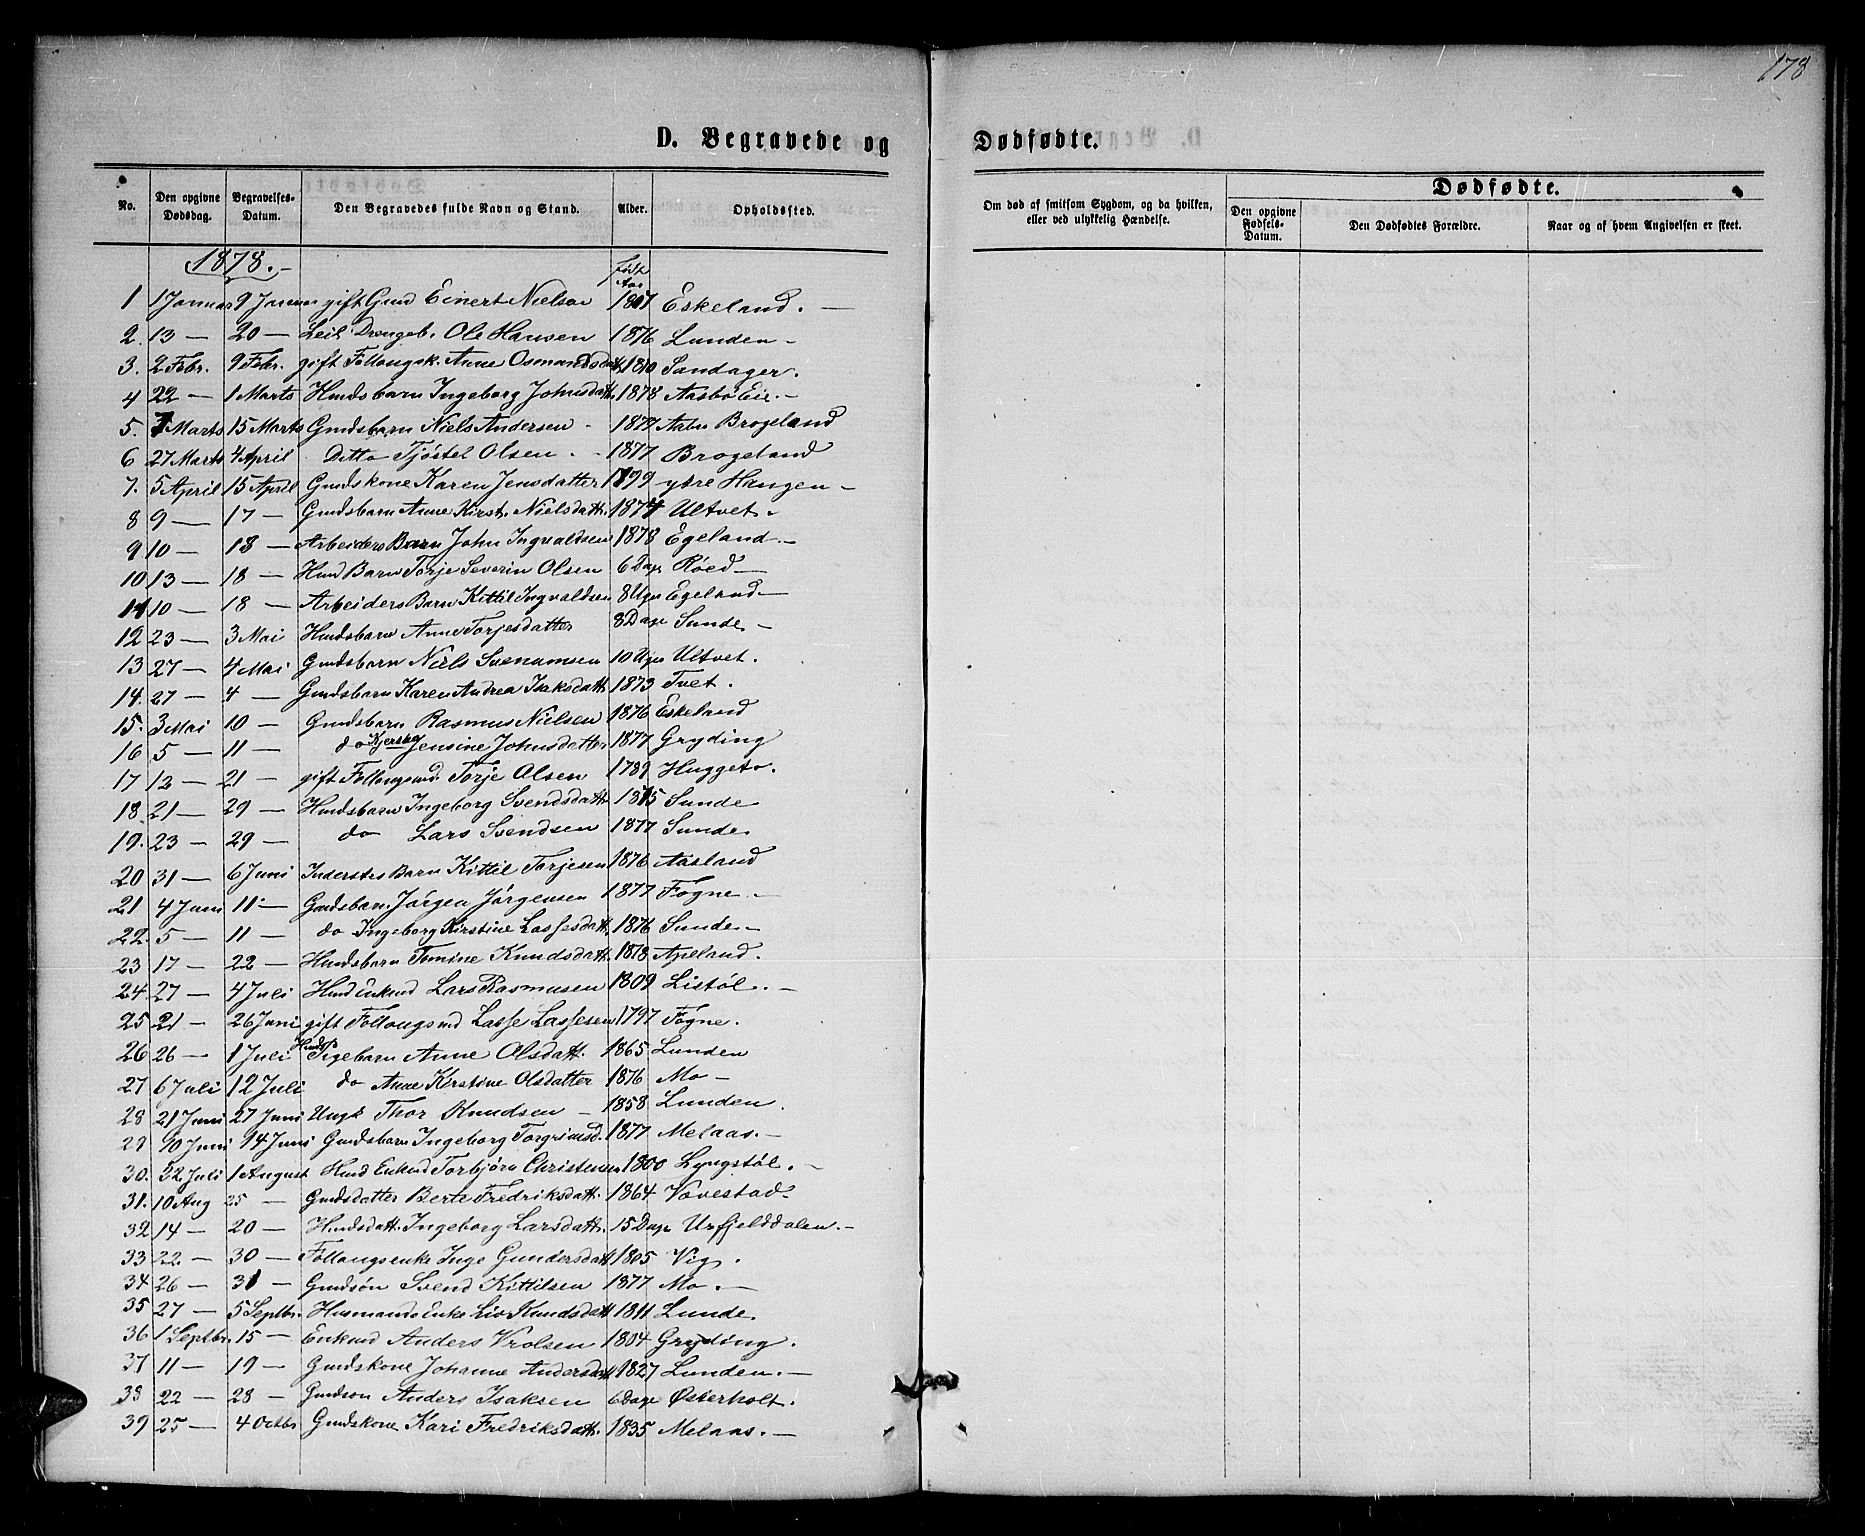 178
D. Begravede og Dødfødte.
No. Den opgivne Dødsdag. Begravelses-Datum. Den Begravedes fulde Navn og Stand. Alder. Opholdssted. Om død af smitsom Sygdom, og da hvilken, eller ved ulykkelig Hændelse. Dødfødte. Den opgivne Fødsels-Datum. Den Dødfødtes Forældre. Naar og af hvem Angivelsen er skeet.
1878.- født Aar
1 1 Januar 9 Januar gift Gmd Einert Nielsen 1807 Eskeland. -
2. 13 - 20 - Leil. Drengeb. Ole Hansen 1876 Lunden -
3. 2 Febr. 9 Febr. gift Follaugsk. Anne Osmundsdatt. 1810 Sandager.
4 22 - 1 Marts Hmdsbarn Ingeborg Johnsdatt. 1878 Aasbø Eie. -
5. 7 Marts 15 Marts Gmdsbarn Niels Andersen - 1877 Brogeland
6 27 Marts 4 April Ditto Tjöstel Olsen - 1877 Brogeland
7. 5 April 15 April Gmdskone Karen Jensdatter 1799 ydre Haugen -
8 9 - 17 - Gmdsbarn Anne Kirst. Nielsdatt. 1874 Ultvet -
9 10 - 18 - Arbeiders Barn John Ingvaldsen 1878 Egeland -
10 13 - 18 - Hmd Barn Torje Severin Olsen 6 Dage Röed -
11 10 - 18 - Arbeiders Barn Kittil Ingvaldsen 8 Uger Egeland -
12 23 - 3 Mai Hmdsbarn Anne Torjesdatter 8 Dage Sunde -
13 27 - 4 Mai Gmdsbarn Niels Svenumsen 10 Uger Ultvet.
14. 27 - 4 - Gmdsbarn Karen Andrea Isaksdatt. 1873 Tvet.
15. 3 Mai 10 - Gmdsbarn Rasmus Nielsen 1876 Eskeland
16 5 - 11 - do Kjersteg Jensine Johnsdatter 1877 Gryding
17 12 - 21 - gift Follaugsmd Torje Olsen 1789 Huggeto.
18. 21 - 29 - Hmdsbarn Ingeborg Svendsdatt. 1875 Sunde
19. 23 - 29 - do Lars Svendsen 1877 Sunde.
20 31 - 6 Juni Inderstes Barn Kittil Torjesen 1876 Aasland
21 4 Juni 11 - Gmdsbarn Jörgen Jörgensen 1877 Fogne. -
22. 5 - 11 - do Ingeborg Kirstine Lassesdatt. 1876 Sunde -
23 17 - 22 - Hmdsbarn Tomine Knudsdatt. 1878 Apeland.
24 27 - 4 Juli Hmd Enkmd Lars Rasmusen 1809 Listöl. -
25 21 - 26 Juni gift Follaugsmd Lasse Lassesen 1797 Fogne.
26 26 - 1 Juli Hmds Pigebarn Anne Olsdatt. 1865 Lunden
27 6 Juli 12 Juli do Anne Kirstine Olsdatter 1876 Mo -
28 21 Juni 27 Juni Ungk Thor Knudsen - 1858 Lunden.
29 10 Juni 14 Juni Gmdsbarn Ingeborg Torgrimsd. 1877 Melaas. -
30. 22 Juli 1 August Hmd Enkmd Torbjörn Christensen 1800 Lyngstöl. -
31. 10 Aug 25 - Gmdsdatter Berte Fredriksdatt. 1864 Vævestad.
32 14 - 20 - Hmdsdatt. Ingeborg Larsdatt. 15 Dage Urfjelddalen. -
33 22 - 30 - Follaugsenke Inge Gundersdatt 1805 Vig.
34 26 - 31 - Gmdsön Svend Kittilsen 1877 Mo. -
35 27 - 5 Septbr. Husmands Enke Liv Knudsdatt 1811 Lunde.
36 1 Septbr. 15 - Enkmd Anders Vrolsen 1804 Gryding.
37 11 - 19 - Gmdskone Johanne Andersdatt 1827 Lunden. -
38 22 - 28 - Gmdsön Anders Isaksen 6 Dage Østerholt.
39 25 - 4 Octbr Gmdskone Kari Fredriksdatt. 1835 Melaas. -